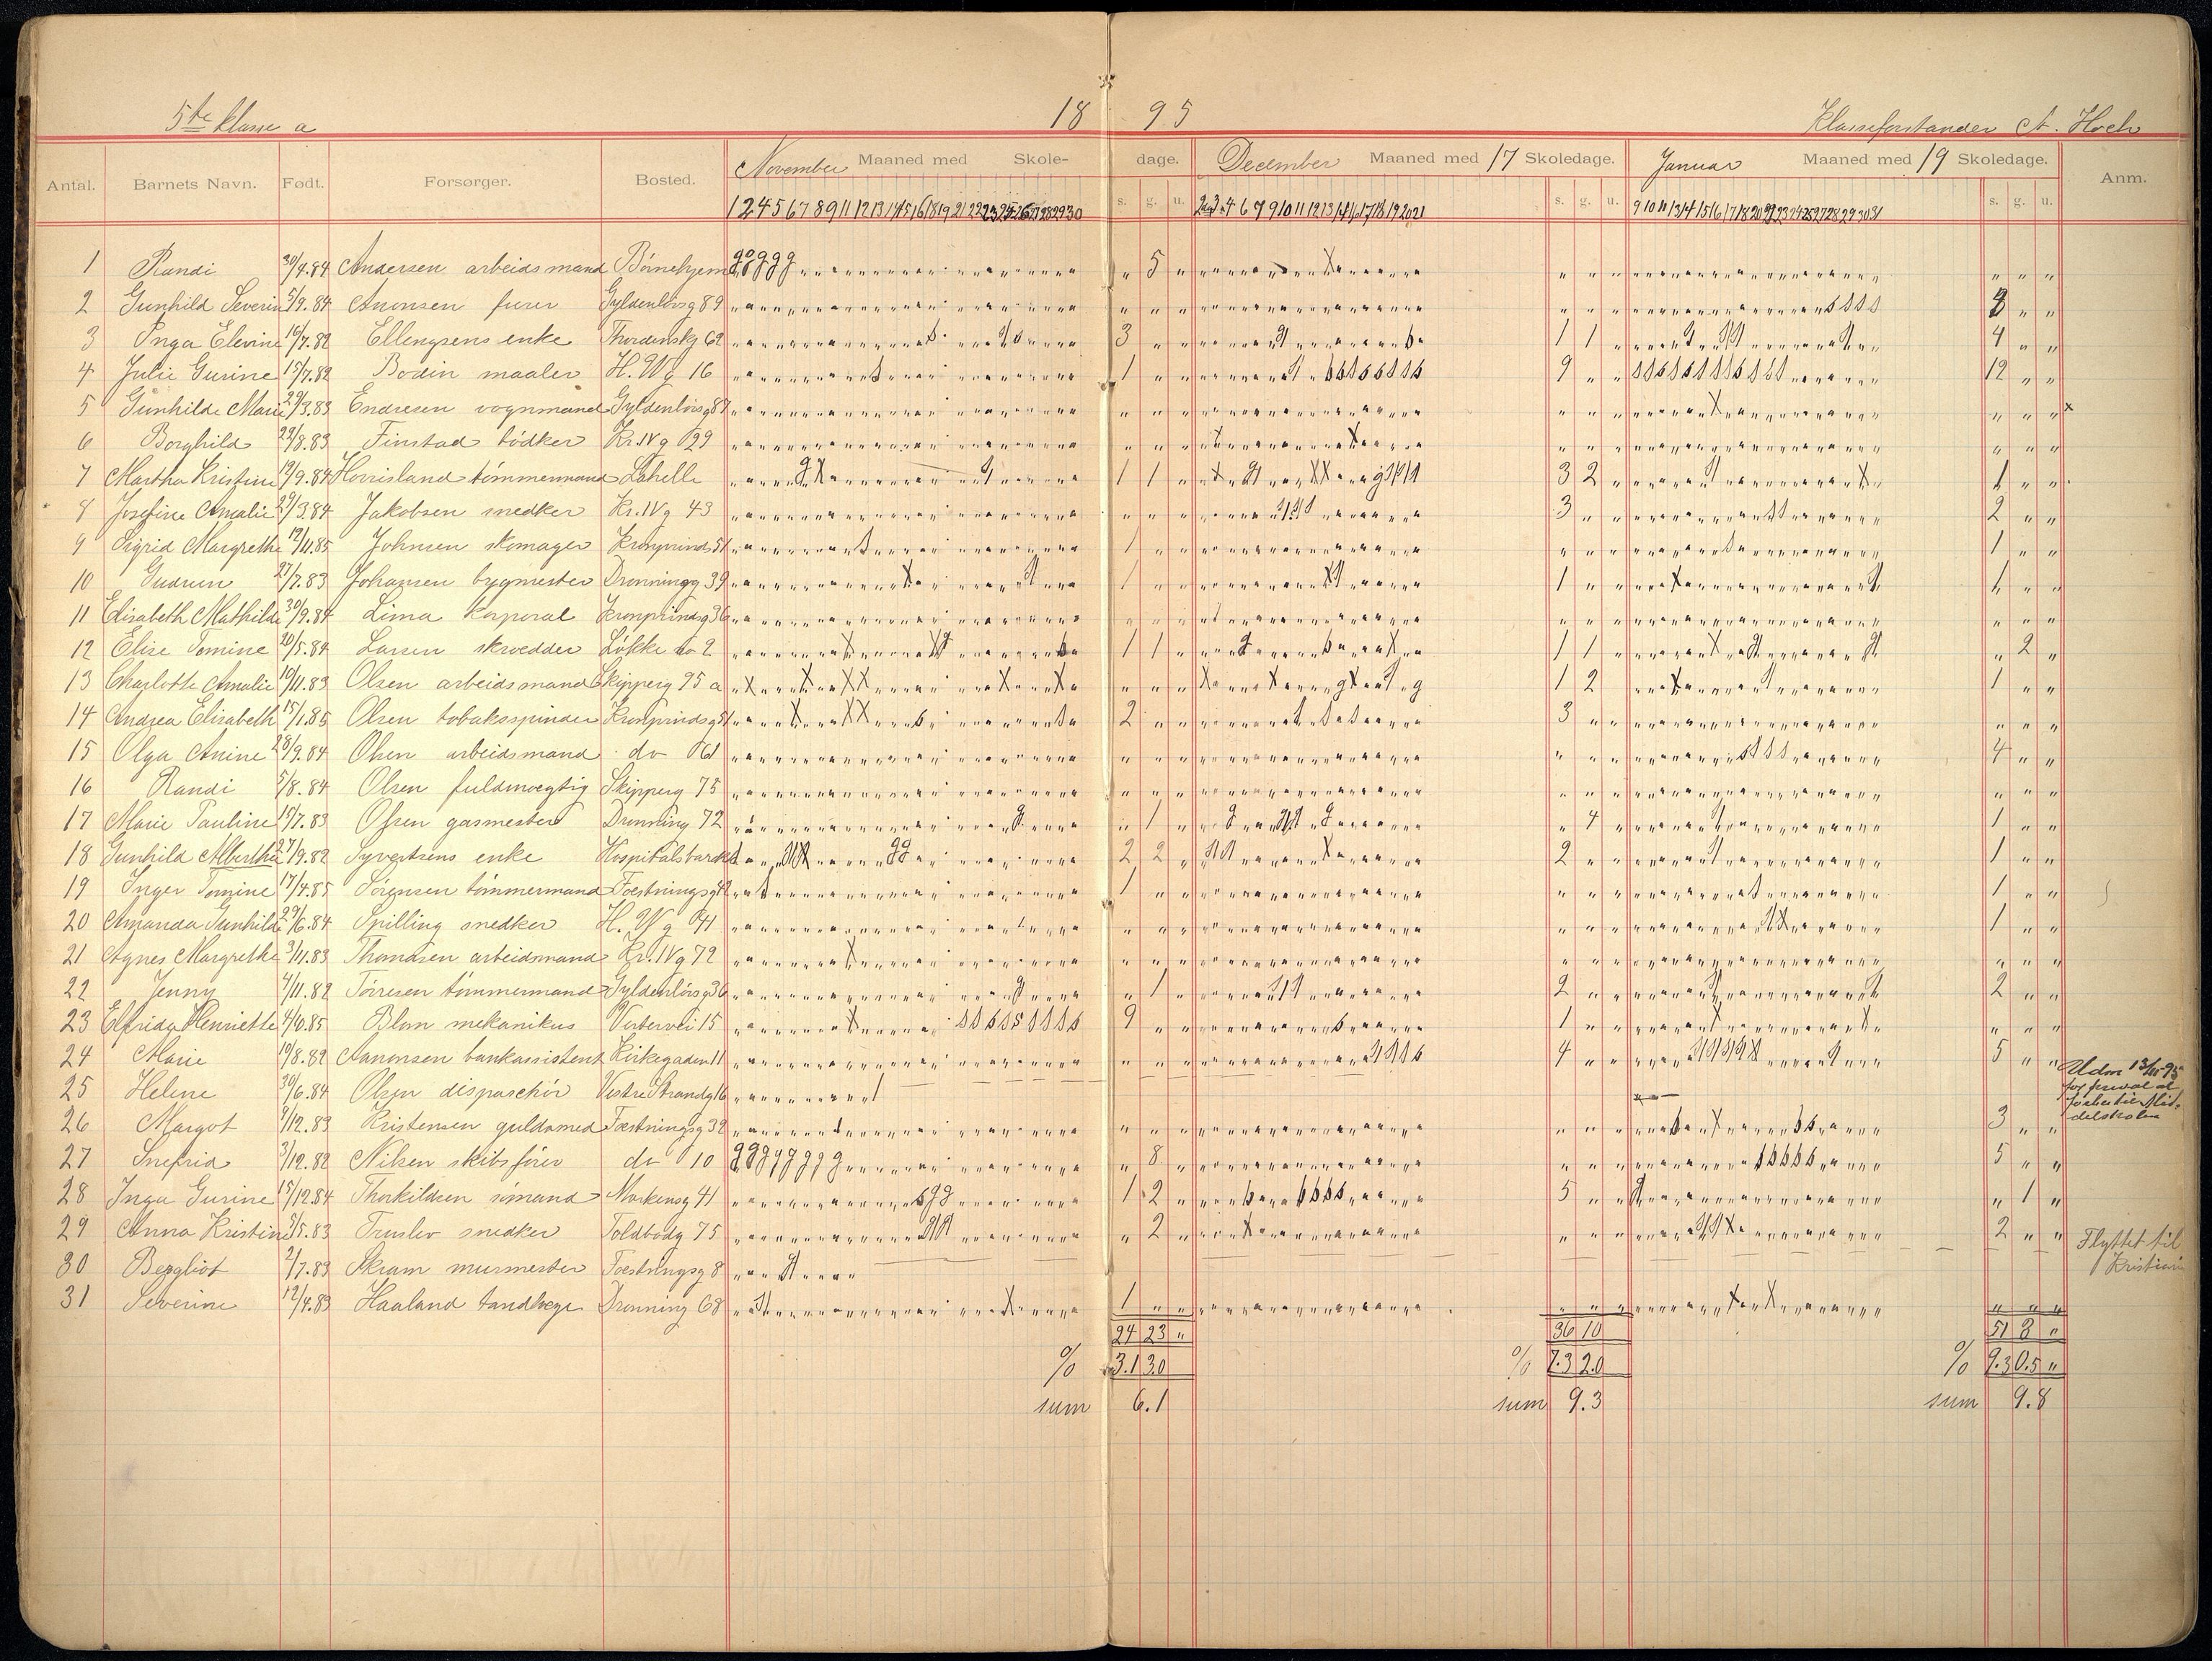 5te klasse a 18 95 Klasseforstander A. Hoch
Antal. Barnets Navn. Født. Forsørger. Bosted. November Maaned med Skole- dage. December Maaned med 17 Skoledage. Januar Maaned med 19 Skoledage. Anm.
s. g. u. s. g. u. s. g. u.
1 Randi 30/4.84 Andersen arbeidsmand Børnehjem " 5 " " " " " " "
2 Gunhild Severin 5/9.84 Anonsen furer Gyldenløvsg 89 " " " " " " 3 " "
3 Inga Elevine 16/7.82 Ellengsens enke Thordenskg 62 3 " " 1 1 4 " "
4 Julie Gurine 15/7.82 Bodin maaler H. W g 16 1 " " 9 " " 12 " "
5 Gunhilde Marie 29/3.83 Endresen vognmand Gyldenløvsg 87 " " " " " " " " " x
6 Borghild 22/8.83 Finstad bødker Kr. IV g 29 " " " " " " " " "
7 Martha Kristine 12/9.84 Hovrisland tømmermand Lahelle 1 1 " 3 2 " 1 " "
8 Josefine Amalie 29/3.84 Jakobsen snedker Kr. IV g 43 " " " 3 " " 2 " "
9 Sigrid Margrethe 12/11.85 Johnsen skomager Kronprinds 51 1 " " " " " 1 " "
10 Gudrun 27/7.83 Johansen bygmester Dronningg 39 1 " " 1 " " 1 " "
11 Elisabeth Mathilde 30/9.84 Lima korporal Kronprindsg 36 " " " " " " " " "
12 Elise Tomine 20/5.84 Larsen skrædder Løkke no 2 1 1 " 1 1 " " 2 "
13 Charlotte Amalie 19/11.83 Olsen arbeidsmand Skipperg 95 a " " " 1 2 1 " "
14 Andrea Elisabeth 15/1.85 Olsen tobaksspinder Kronprindsg 51 2 " " 3 " " " " "
15 Olga Anine 28/9.84 Olsen arbeidsmand do 61 " " " " " " 4 " "
16 Randi 5/8.84 Olsen fuldmægtig Skipperg 75 " " " " " " " " "
17 Marie Pauline 15/7.83 Olsen gasmester Dronning 72 " 1 " " 4 " 1 " "
18 Gunhild Albertha 27/9.82 Syvertsens enke Hospitalsbarak 2 2 " 2 " " 1 " "
19 Inger Tomine 17/4.85 Sørensen tømmermand Fæstningsg 42 1 " " " " " 1 " "
20 Amanda Gunhilde 29/6.84 Spilling snedker H. W g 41 " " " " " " 1 " "
21 Agnes Margrethe 3/11.83 Thomasen arbeidsmand Kr. IV g 72 " " " " " " " " "
22 Jenny 4/11.82 Tørresen tømmermand Gyldenløvsg 36 " 1 " 2 " " 2 " "
23 Elfrida Henriette 4/10.85 Blom mekanikus Vestervei 15 9 " " 1 " " " " "
24 Marie 19/8.82 Aanonsen bankassistent Kirkegaden 11 " " " 4 " " 5 " "
25 Helene 30/6.84 Olsen dispaschør Vestre Strandg 16 Udm 13/11-95
26 Margot 9/12.83 Kristensen guldsmed Fæstningsg 32 " " " " " " 3 " " delskolen
27 Snefrid 3/12.82 Nilsen skibsfører do 10 " 8 " " " " 5 " "
28 Inga Gurine 15/12.84 Thorkildsen sømand Markensg 41 1 2 " 5 " " " 1 "
29 Anna Kristine 5/5.83 Truslev snedker Toldbodg 75 " 2 " " " " 2 " "
30 Bergliot 2/7.83 Skram murmester Fæstningsg 8 Flyttet til Kristiania
31 Severine 12/4.83 Haaland tandlæge Dronning 68 1 " " " " " " " "
24 23 " 36 10 51 3 "
% 3.1 3.0 % 7.3 2.0 % 9.3 0.5 "
sum 6.1 sum 9.3 sum 9.8